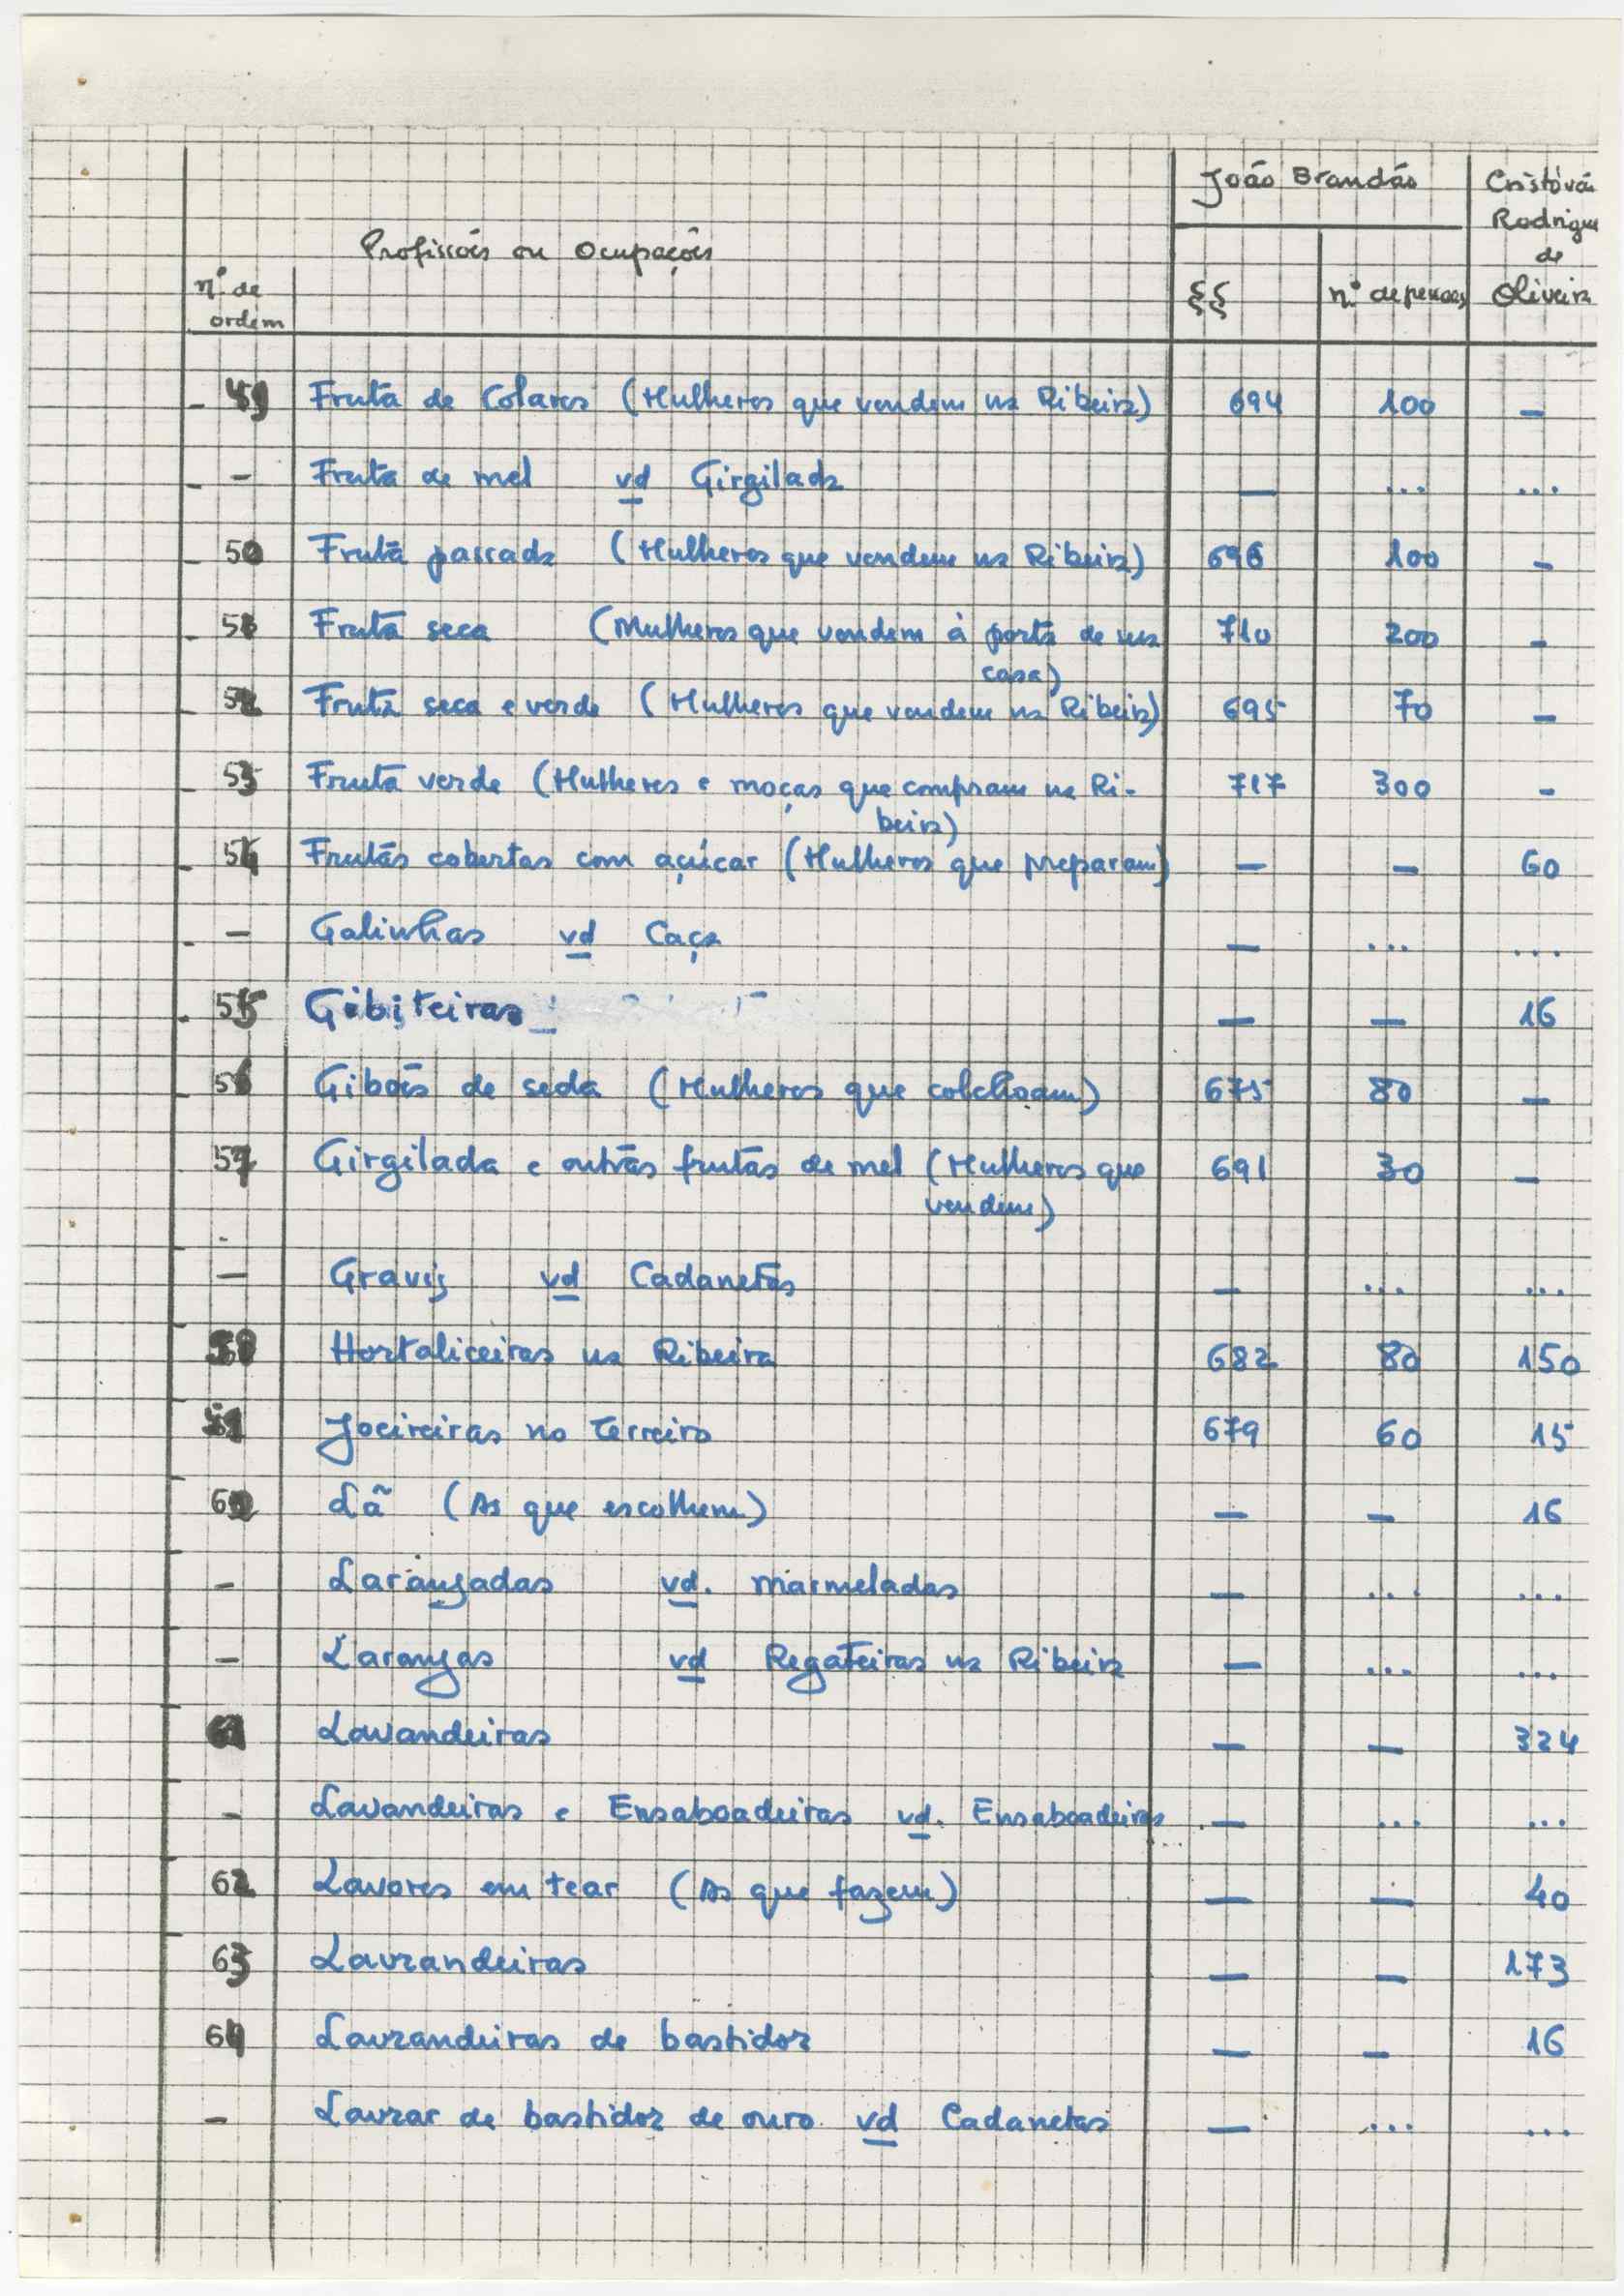 João Brandão
Cristóvã
Rodrigue
de
Oliveir
Profissões ou Ocupações
n.º de
ordem
§§
n.º de pessoas
49 Fruta de Colares (Mulheres que vendem na Ribeira) 694 100 —
— Fruta de mel vd Girgilada — ... ...
50 Fruta passada (Mulheres que vendem na Ribeira) 696 100 —
51 Fruta seca (Mulheres que vendem à porta de sua 710 200 —
casa)
52 Fruta seca e verde (Mulheres que vendem na Ribeira) 695 70 —
53 Fruta verde (Mulheres e moças que compram na Ri- 717 300 -
beira)
54 Frutas cobertas com açúcar (Mulheres que preparam) — — 60
— Galinhas vd Caça — ... ...
55 Gibiteiras — — 16
56 Gibões de seda (Mulheres que colchoam) 675 80 —
57 Girgilada e outras frutas de mel (Mulheres que 691 30 —
vendem)
— Gravis vd Cadanetas — ... ...
58 Hortaliceiras na Ribeira 682 80 150
59 Joeireiras no Terreiro 679 60 15
60 Lã (As que escolhem) — — 16
— Laranjadas vd. marmeladas — ... ...
— Laranjas vd Regateiras na Ribeira — ... ...
61 Lavandeiras — — 324
— Lavandeiras e Ensaboadeiras vd. Ensaboadeiras — ... ...
62 Lavores em tear (As que fazem) — — 40
63 Lavrandeiras — — 173
64 Lavrandeiras de bastidor — — 16
— Lavrar de bastidor de ouro vd Cadanetas — ... ...